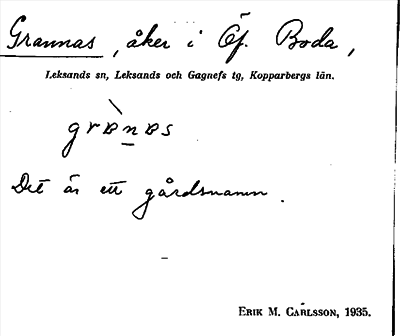 Grannas, åker i Öf. Boda,
Leksands sn, Leksands och Gagnefs tg, Kopparbergs län.
grànas
Det är ett gårdsnamn.
ERIK M. CARLSSON, 1935.